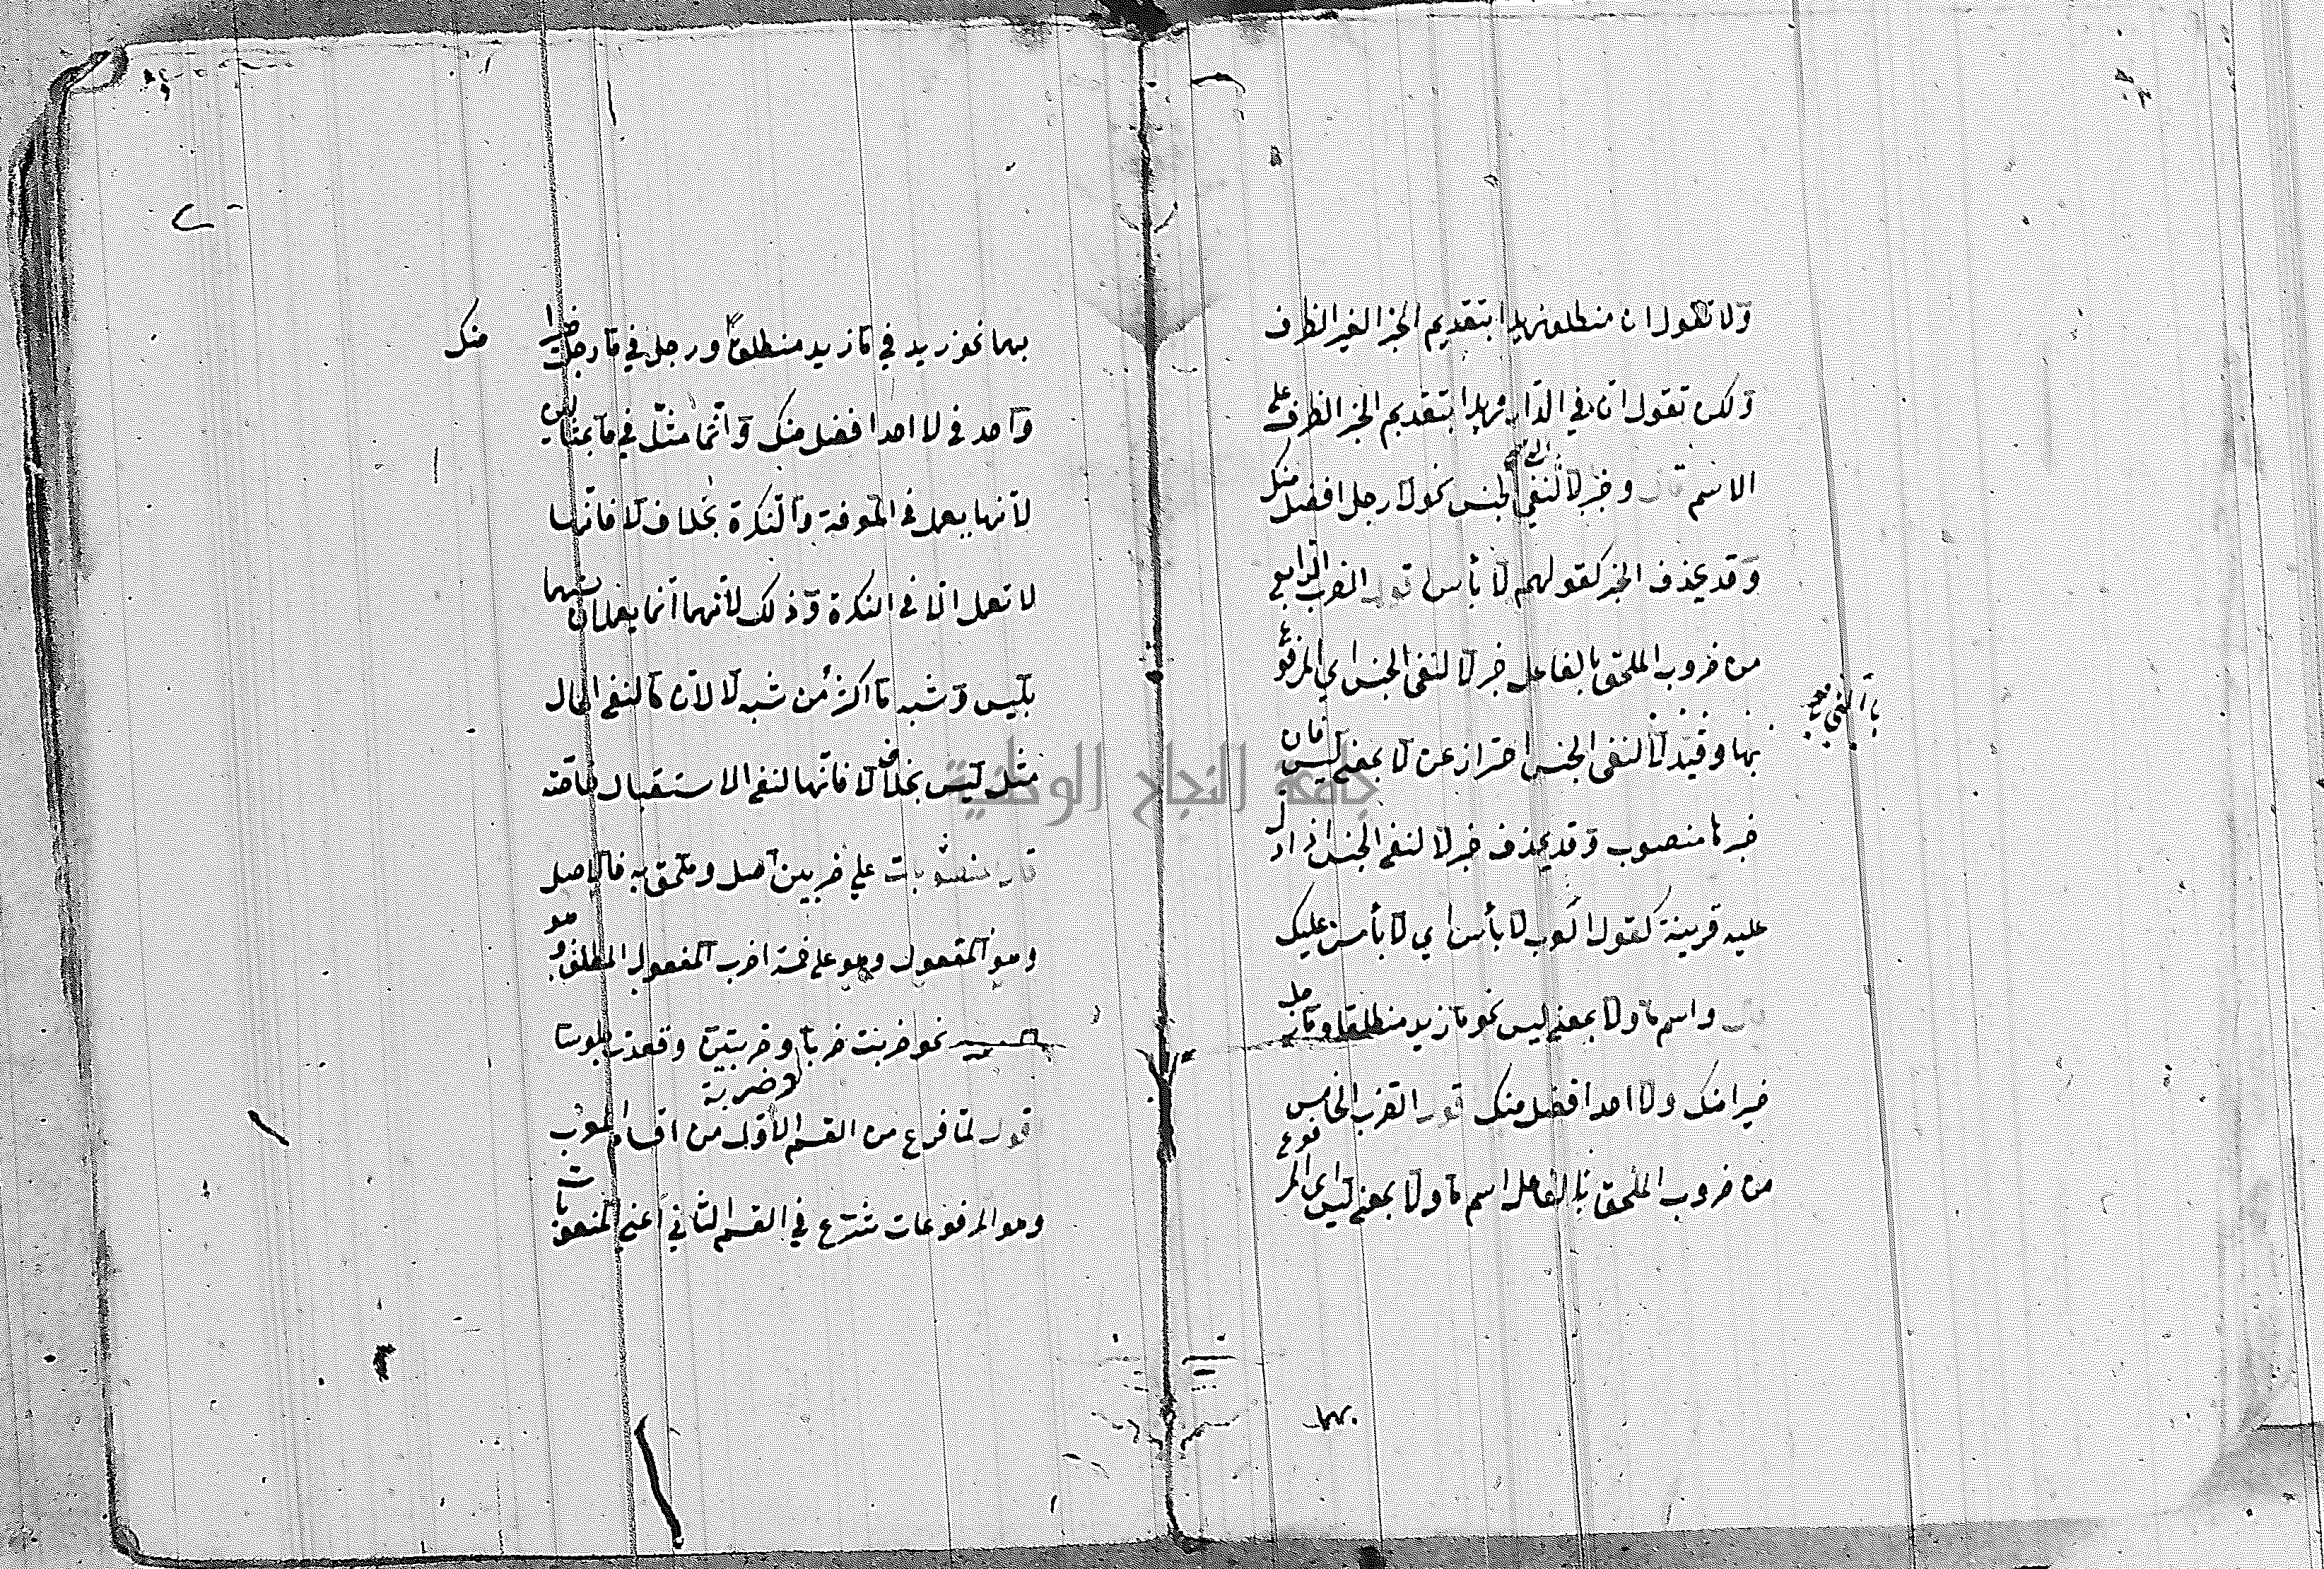 ولا تقول ان منطلق زيدا بتقديم الخبر الغير الظرف
ولكن تقول ان في الدار زيدا بتقديم الخبر الظرف على
الاسم قال وخبر لا لنفي الجنس نحو لا رجل افضل منك
وقد يحذف الخبر كقولهم لا بأس اقول الضرب الرابع
من ضروب الملحق بالفاعل خبر لا لنفي الجنس اي المرفوع
بها وقيد لا لنفي الجنس احتراز عن لا بمعنى ليس فان
خبرها منصوب وقد يحذف خبر لا لنفي الجنس اذا دل
عليه قرينة كقول العرب لا بأس اي لا بأس عليك
قال واسم ما ولا بمعنى ليس نحو ما زيد منطلقا وما رجل
خيرا منك ولا احد افضل منك اقول الضرب الخامس
من ضروب الملحق بالفاعل اسم ما ولا بمعنى ليس اي المرفوع
بهما نحو زيد في ما زيد منطلقا ورجل في ما رجل خيرا منك
واحد في لا احد افضل منك وانما مثل في ما بمثالين
لانها يعمل في المعرفة والنكرة بخلاف لا فانها
لا تعمل الا في النكرة وذلك لانهما انما يعملان لشبههما
بليس وشبه ما اكثر من شبه لا لان ما لنفي الحال
مثل ليس بخلاف لا فانها لنفي الاستقبال خاصة
قال منصوبات على ضربين اصل وملحق به فالاصل
وهو المفعول وهو على خمسة اضرب المفعول المطلق وهو
نحو ضربت ضربا وضربتين وقعدت جلوسا
وضربة
اقول لما فرغ من القسم الاول من اقسام المعرب
وهو المرفوعات شرع في القسم الثاني اعني المنصوبات
جامعة النجاح الوطنية